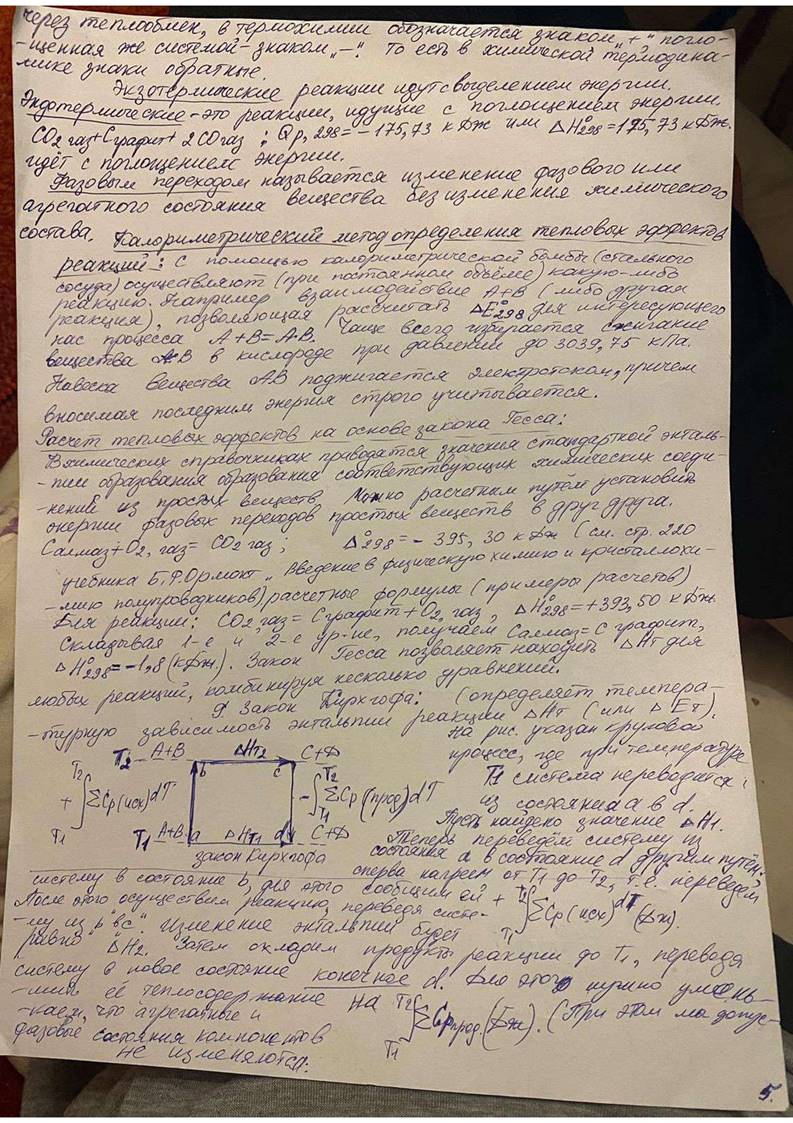 через теплообмен, в термохимии обозначается знаком „+“ погло-
-щенная же системой- знаком „—“. То есть в химической термодина-
-мике знаки обратные.
Экзотермические реакции идут с выделением энергии.
Эндотермические - это реакции, идущие с поглощением энергии.
CO2 газ + C графит + 2CO газ ; Qp, 298 = - 175,73 кДж или ΔH°298 = 175,73 кДж.
идёт с поглощением энергии.
Фазовым переходом называется изменение фазового или
агрегатного состояния вещества без изменения химического
состава. Калориметрический метод определения тепловых эффектов
реакций: С помощью калориметрической бомбы (стального
сосуда) осуществляют (при постоянном объёме) какую-либо
реакцию. Например взаимодействие A+B (либо другая
реакция), позволяющая рассчитать ΔE°298 для интересующего
нас процесса A+B=A·B. Чаще всего избирается сжигание
вещества AB в кислороде при давлении до 3039,75 кПа.
Навеска вещества AB поджигается электротоком, причем
вносимая последним энергия строго учитывается.
Расчет тепловых эффектов на основе закона Гесса:
В химических справочниках приводятся значения стандартной энталь-
- пии образования образования соответствующих химических соеди-
-нений из простых веществ Можно расчетным путем установить
энергии фазовых переходов простых веществ в друг друга.
C алмаз + O2, газ = CO2 газ ; Δ°298 = - 395, 30 кДж (см. стр. 220
учебника Б.Ф. Ормонт „Введение в физическую химию и кристаллохи-
-мию полупроводников) расчетные формулы (примеры расчетов)
Для реакции: CO2, газ = C графит + O2, газ, ΔH°298 = +393,50 кДж
Складывая 1-е и 2-е ур-ие, получаем C алмаз = C графит,
ΔH°298 = -1,8 (кДж.). Закон Гесса позволяет находить ΔHT для
любых реакций, комбинируя несколько уравнений.
Закон Кирхгофа: (определяет темпера-
-турную зависимость энтальпии реакции ΔHT (или ΔET).
На рис. указан круговой
процесс, где при температуре
T1 система переводится
из состояния a в d.
Пусть найдено значение ΔH1.
T2 A+B ΔHT2 C+D
b c
+ ∫ T2 T1 ΣCp(исх)dT - ∫ T2 T1 ΣCp(прод)dT
T1 A+B a ΔHT1 d C+D
закон Кирхгофа
Теперь переведём систему из
состояния a в состояние d другим путём.
сперва нагреем от T1 до T2, т.е. переведём
систему в состояние b, для этого сообщим ей + ∫ T2 T1 ΣCp(исх)dT (Дж).
После этого осуществим реакцию, переведя систе-
-му из b "в c". Изменение энтальпии будет
равно ΔH2. Затем охладим продукты реакции до T1, переводя
систему в новое состояние конечное d. Для этого нужно умень-
-шить её теплосодержание на ∫ T2 T1 ΣCp прод. (Дж). (При этом мы допус-
-каем, что агрегатные и
фазовые состояния компонентов
не изменяются.
5.